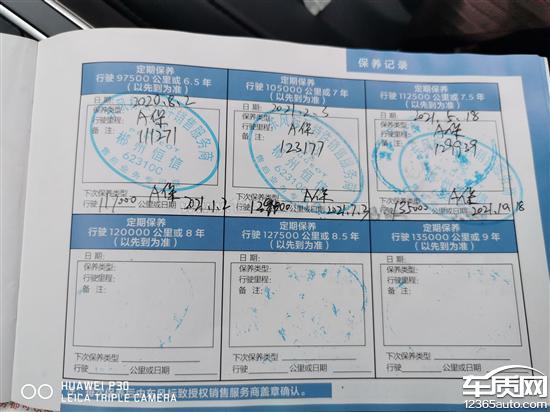 保养记录
定期保养
行驶 97500 公里或 6.5 年
(以先到为准)
日 期: 2020.8.2
保养类型: A保
行驶里程: 111271
备 注:
郴州恒信
623100
下次保养类型 A保
117000 公里或日期 2021.1.2
定期保养
行驶 105000 公里或 7 年
(以先到为准)
日 期: 2021.2.3
保养类型: A保
行驶里程: 123177
备 注:
郴州恒信
下次保养类型 A保
公里或日期 2021.7.2
定期保养
行驶 112500 公里或 7.5 年
(以先到为准)
日 期: 2021.5.18
保养类型: A保
行驶里程: 129929
备 注:
下次保养类型 A保
135000 公里或日期
定期保养
行驶 120000 公里或 8 年
(以先到为准)
日 期:
保养类型:
行驶里程:
备 注:
下次保养类型
公里或日期
定期保养
行驶 127500 公里或 8.5 年
(以先到为准)
日 期:
保养类型:
行驶里程:
备 注:
下次保养类型
公里或日期
定期保养
行驶 135000 公里或 9 年
(以先到为准)
日 期:
保养类型:
行驶里程:
备 注:
下次保养类型
公里或日期
东风标致授权销售服务商盖章确认。
HUAWEI P30
LEICA TRIPLE CAMERA
车质网
12365auto.com